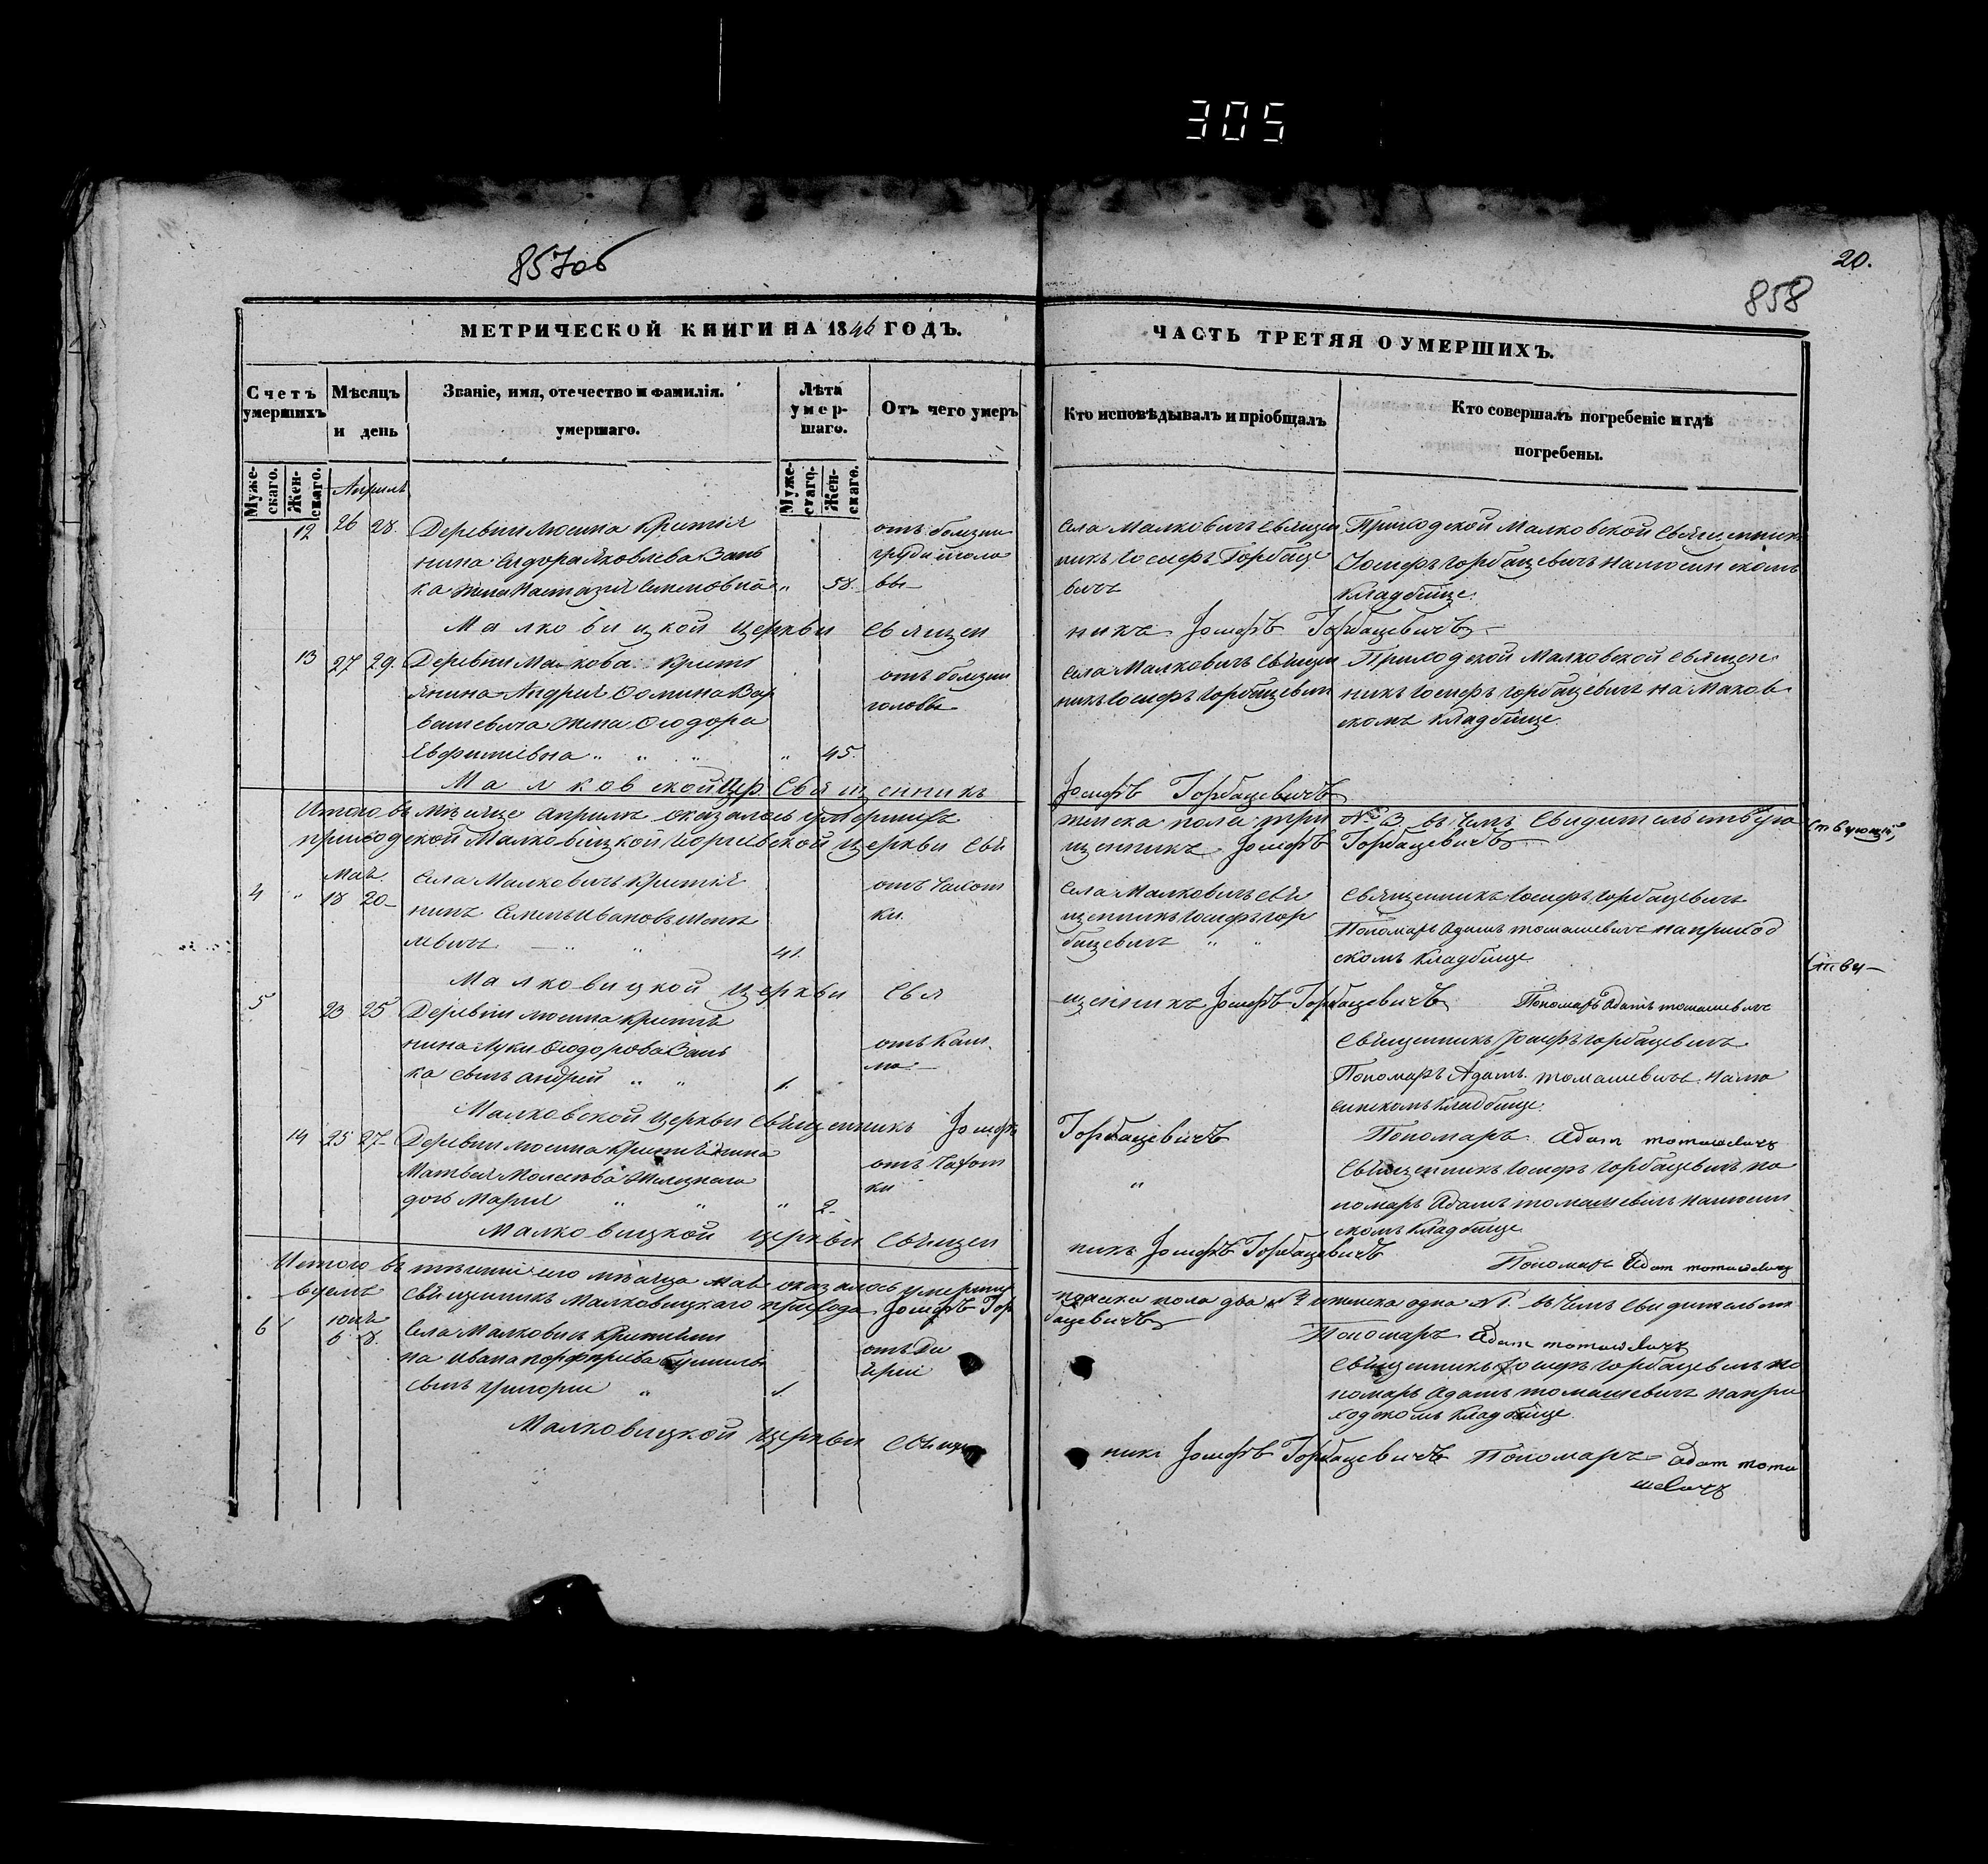 305
857об
20.
858
МЕТРИЧЕСКОЙ КНИГИ НА 1846 ГОДЪ.
ЧАСТЬ ТРЕТЯЯ О УМЕРШИХЪ.
Счетъ умершихъ
Мѣсяцъ и день
Званіе, имя, отечество и фамилія умершаго.
Лѣта умершаго.
Отъ чего умеръ
Кто исповѣдывалъ и пріобщалъ
Кто совершалъ погребеніе и гдѣ погребены.
Мужескаго.
Женскаго.
Мужескаго.
Женскаго.
Апрель
12 26 28. Деревни Люсина Крестья
нина Сидора Яковлева Вань
ка жена Настазия Семеновна " 58.
отъ болезни
груди и голо
вы
Села Малковичъ Священ
никъ Іосифъ Горбаце
вичъ
Приходской Малковской Священник
Іосифъ Горбацевичъ на Люсинскомъ
кладбище.
Малковицкой церкви Священ
никъ Іосифъ Горбацевичъ
13 27 29. Деревни Макова Кресть
янина Андрея Фомина Вар
вашевича жена Феодора
Евфимиевна " " " " 45.
отъ болезни
головы
Села Малковичъ Священ
никъ Іосифъ Горбацевич
Приходской Малковской Священ
никъ Іосифъ Горбацевичъ на Маков
скомъ кладбище.
Малковской Цр. Священникъ
Іосифъ Горбацевичъ
Итого въ месяце Апреле оказалось умершихъ
женска пола три № 3 въ чемъ Свидетельствую
приходской Малковицкой церкви Свя
щенникъ Іосифъ Горбацевичъ
ствующій,
Май
4 " 18 20 Села Малковичъ Крестья
нинъ Семенъ Ивановъ
левичъ " " 41.
отъ чахот
ки.
Села Малковичъ Свя
щенникъ Іосифъ Гор
бацевичъ " "
Священникъ Іосифъ Горбацевичъ
Пономарь Адамъ Томашевичъ на приход
скомъ кладбище
Малковицкой церкви Свя
щенникъ Іосифъ Горбацевичъ Пономарь Адамъ Томашевичъ
5 23 25 Деревни Люсина Крестья
нина Луки Феодорова Вань
ка сынъ Андрей " " 1.
отъ Каш
ля
Священникъ Іосифъ Горбацевичъ
Пономарь Адамъ Томашевичъ на Лю
синскомъ кладбище.
Малковской церкви Священникъ Іосифъ
Горбацевичъ Пономарь Адам Томашевичъ
14 25 27 Деревни Люсина Крестьянина
Матвея Моисеева
дочь Мария " " " 2.
отъ чахот
ки
"
Священникъ Іосифъ Горбацевичъ по
номарь Адамъ Томашевичъ на Люсин
скомъ кладбище
Малковицкой церкви Священ
никъ Іосифъ Горбацевичъ
Пономарь Адам Томашевичъ
Итого въ течении сего месяца Мая оказалось умерши
мужеска пола два № 2 и женска одна № 1. въ чемъ Свидетельст
вуемъ Священникъ Малковицкаго прихода Іосифъ Гор
бацевичъ
Пономарь Адам Томашевичъ
Июнь
6 6 8. Села Малковичъ Крестьяни
на Ивана Порфириева
сынъ Григорий " 1.
Священникъ Іосифъ Горбацевичъ по
номарь Адамъ Томашевичъ на при
ходскомъ кладбище.
Малковицкой церкви Священ
никъ Іосифъ Горбацевичъ Пономарь Адам Тома
шевичъ